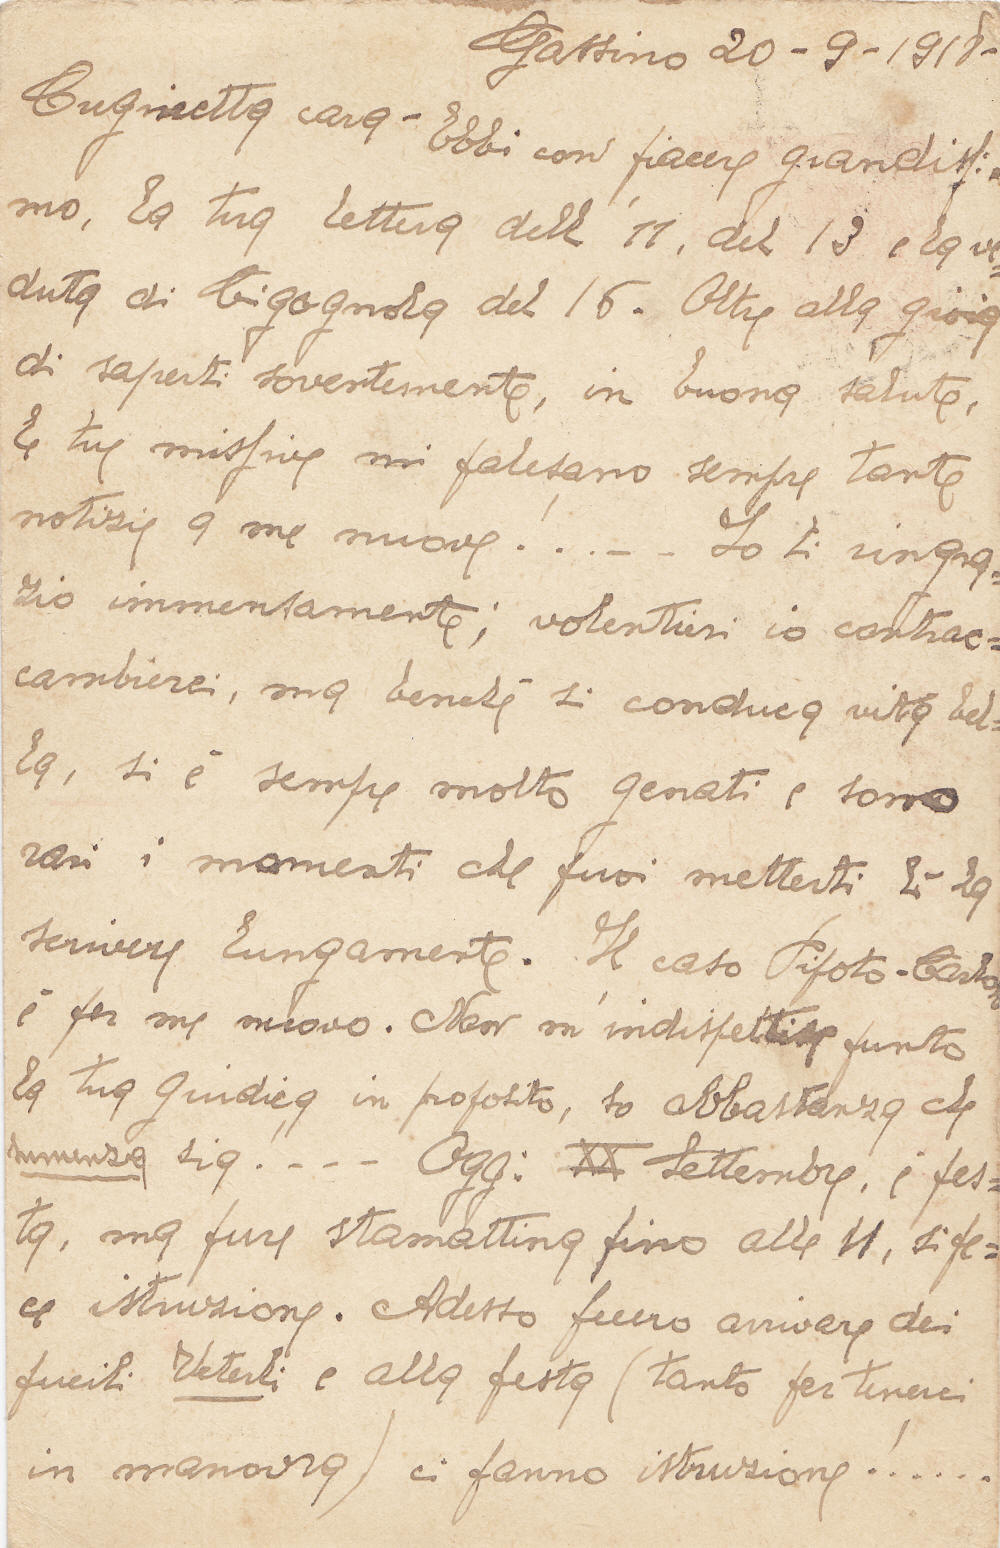 Gassino 20-9-1918-
Cuginetta cara - Ebbi con piacere grandissi=
mo, la tua lettera dell'11, del 13 e la ve=
duta di Cigognola del 16. Oltre alla gioia
di saperti soventemente, in buona salute,
le tue missive mi palesano sempre tante
notizie a me nuove!..--- Io ti ringra=
zio immensamente; volentieri io contrac=
cambierei, ma benchè si conduca vita bel=
la, si è sempre molto genati e sono
rari i momenti che puoi metterti lì la
scrivere lungamente. Il caso Pipoto-Carlon
è per me nuovo. Non m'indispettisce punto
la tua in proposito, so abbastanza che
sia!---- Oggi XX Settembre, è fes=
ta, ma pure stamattina fino alle 11, si fe=
ce istruzione. Adesso fecero arrivare dei
fucili Veterli e alla festa (tanto per tenerci
in manovra) ci fanno istruzione!......